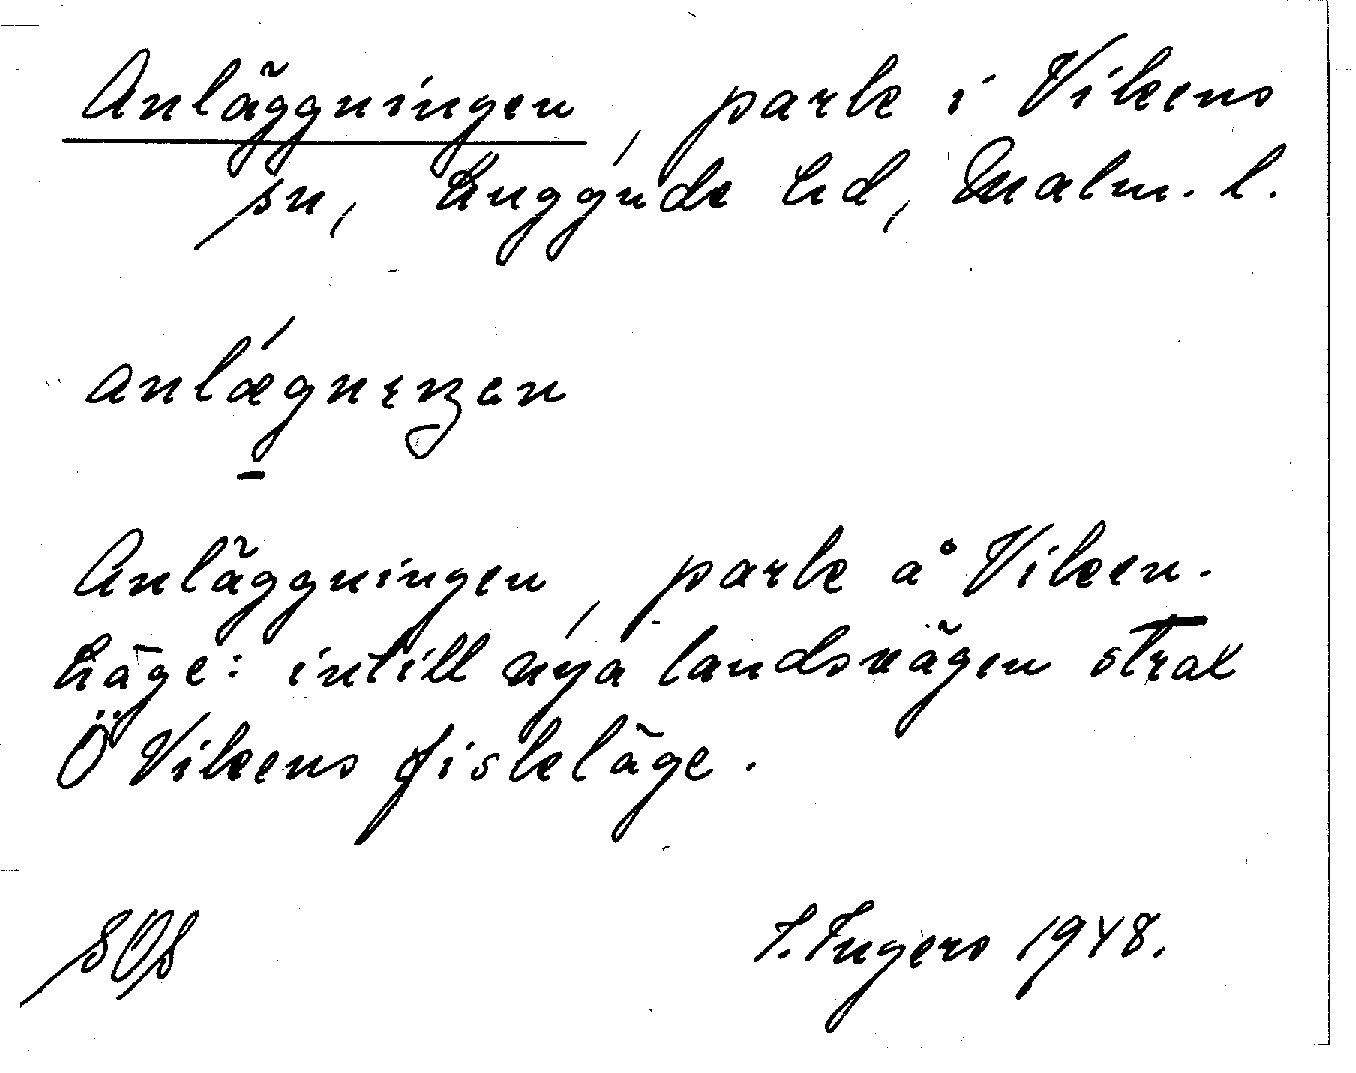 Anläggningen, park i Vikens
sn, Luggude hd, Malm. l.
anlǽgnɪŋən
Anläggningen, park å Viken.
Läge: intill nya landsvägen strax
Ö Vikens fiskeläge.
I. Ingers 1948.